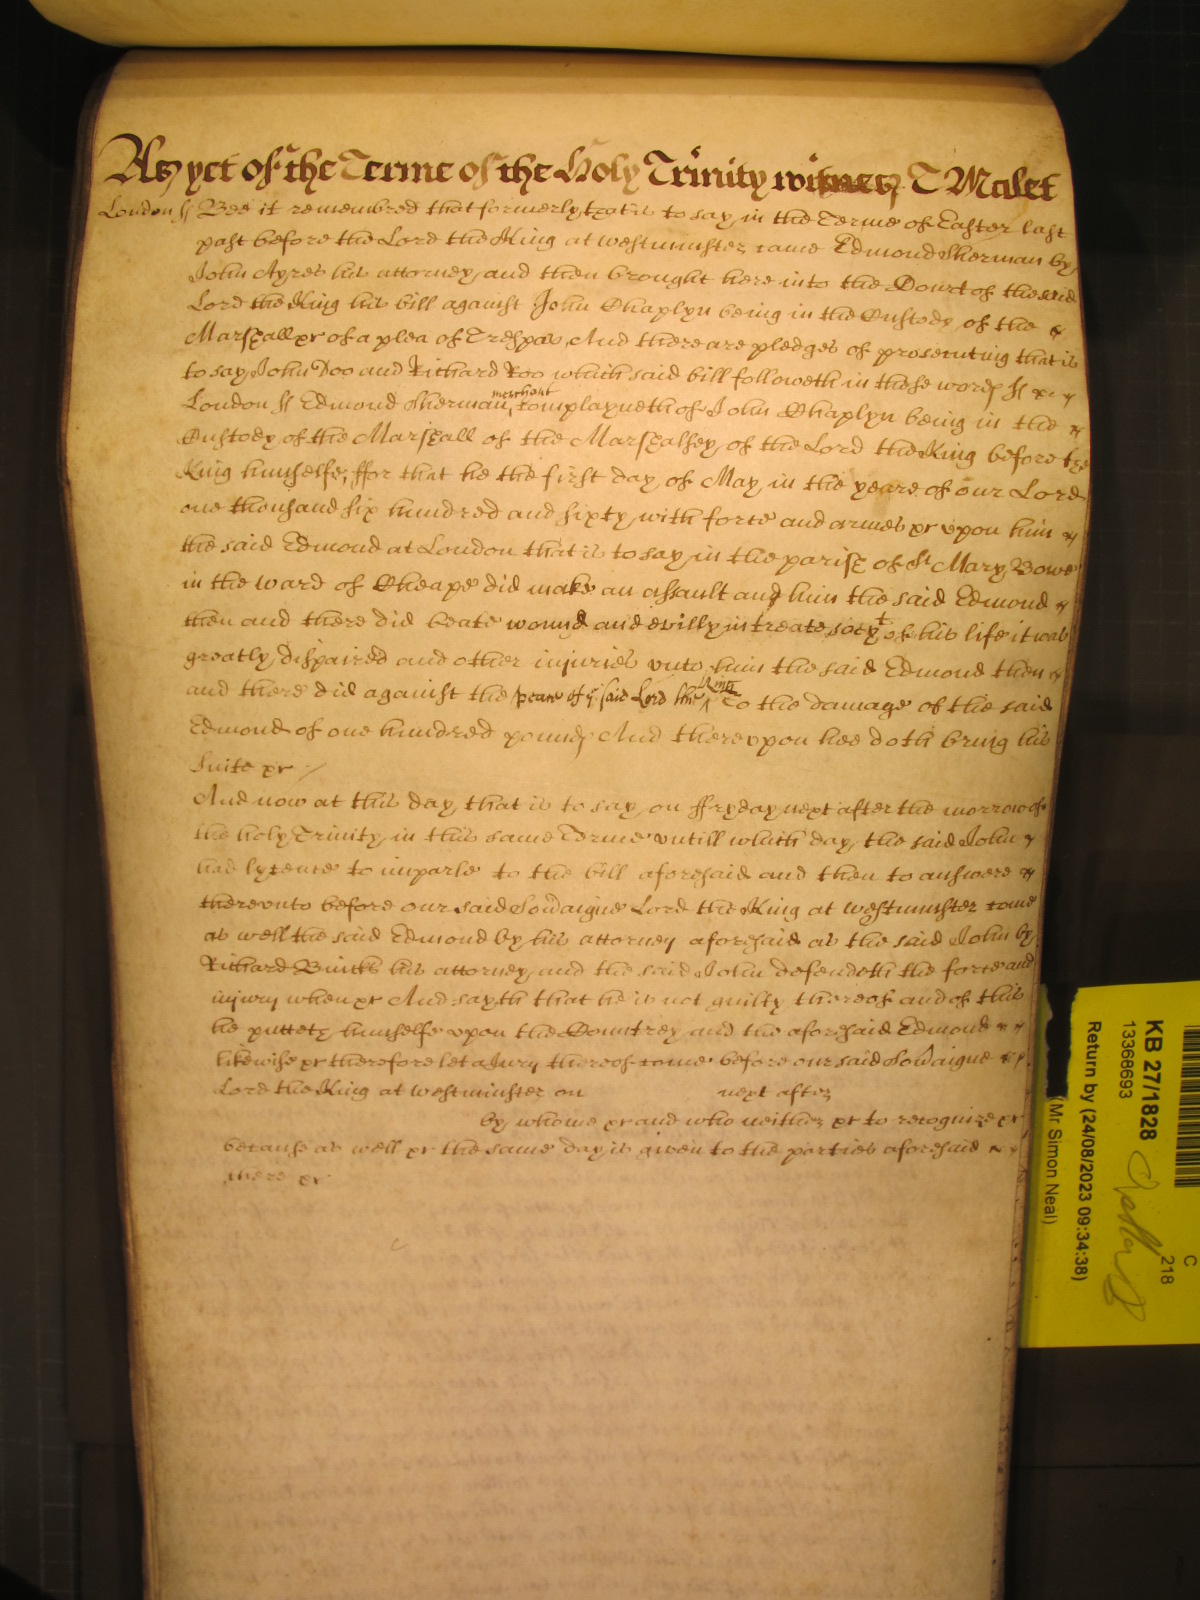 As yet of the Terme of the Holy Trinity witnes T Malet
London ss Bee it remembred that formerly that is to say in the Terme of Easter last
past before the Lord the King at westminster came Edmond Sherman by
John Ayres his attorney and then brought here into the Court of the said
Lord the King his bill against John Chaplyn being in the Custody of the
Marshall xr of a plea of Trespas And there are pledges of prosecuting that is
to say John Doo and Richard Roo which said bill followeth in these words ss xr
London ss Edmond Sherman merchant complayneth of John Chaplyn being in the
Custody of the Marshall of the Marshalsey of the Lord the King before the
King himselfe, ffor that he the first day of May in the yeare of our Lord
one thousand six hundred and sixty with force and armes xr upon him
the said Edmond at London that is to say in the parish of St Mary Bowe
in the ward of Cheape did make an assault and him the said Edmond
then and there did beate wound and evilly intreate soe yt of his life it was
greatly dispaired and other injuries unto him the said Edmond then
and there did against the peace of ye said Lord the King To the damage of the said
Edmond of one hundred pounds And thereupon hee doth bring his
suite xr
And now at this day that is to say on ffryday next after the morrow of
the holy Trinity in this same Terme untill which day the said John
had lycence to imparle to the bill aforesaid and then to answere
thereunto before our said Sovaigne Lord the King at westminster come
as well the said Edmond by his attorney aforesaid as the said John by
Richard his attorney and the said John defendeth the force and
injury when xr And sayth that he is not guilty thereof and of this
he putteth himselfe upon the Countrey and the aforesaid Edmond
likewise xr therefore let a Jury thereof come before our said Sovaigne
Lord the King at westminster on next after
by whome xr and who neither xr to recognize xr
because as well xr the same day is given to the parties aforesaid
there xr
KB 27/1828
13368693
Return by (24/08/2023 09:34:38)
(Mr Simon Neal)
C
218